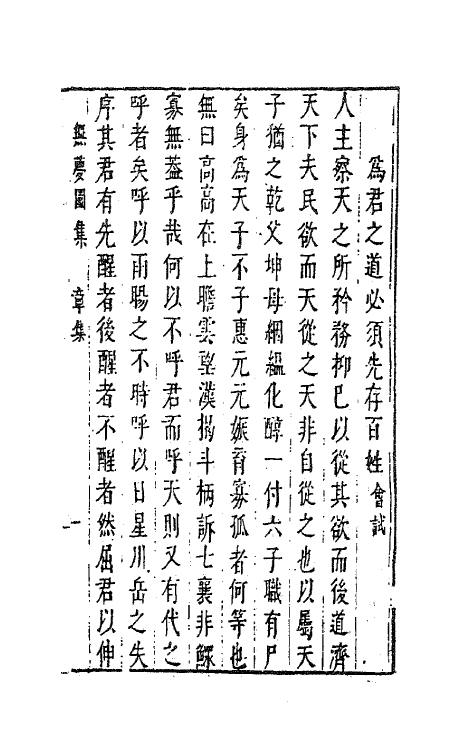 爲君之道必須先存百姓會試
人主察天之所矜務抑已以從其欲而後道濟
天下夫民欲而天從之天非自從之也以屬天
子猶之乾父坤母綱縕化醇一付六子職有尸
矣身爲天子不子惠元元娠育寡孤者何等也
無曰高高在上瞻雲望漢揭斗柄訴七襄非鰥
寡無葢乎哉何以不呼君而呼天則又有代之
呼者矣呼以雨暘之不時呼以日星川岳之失
序其君有先醒者後醒者不醒者然屈君以伸
無夢園集 章集 一